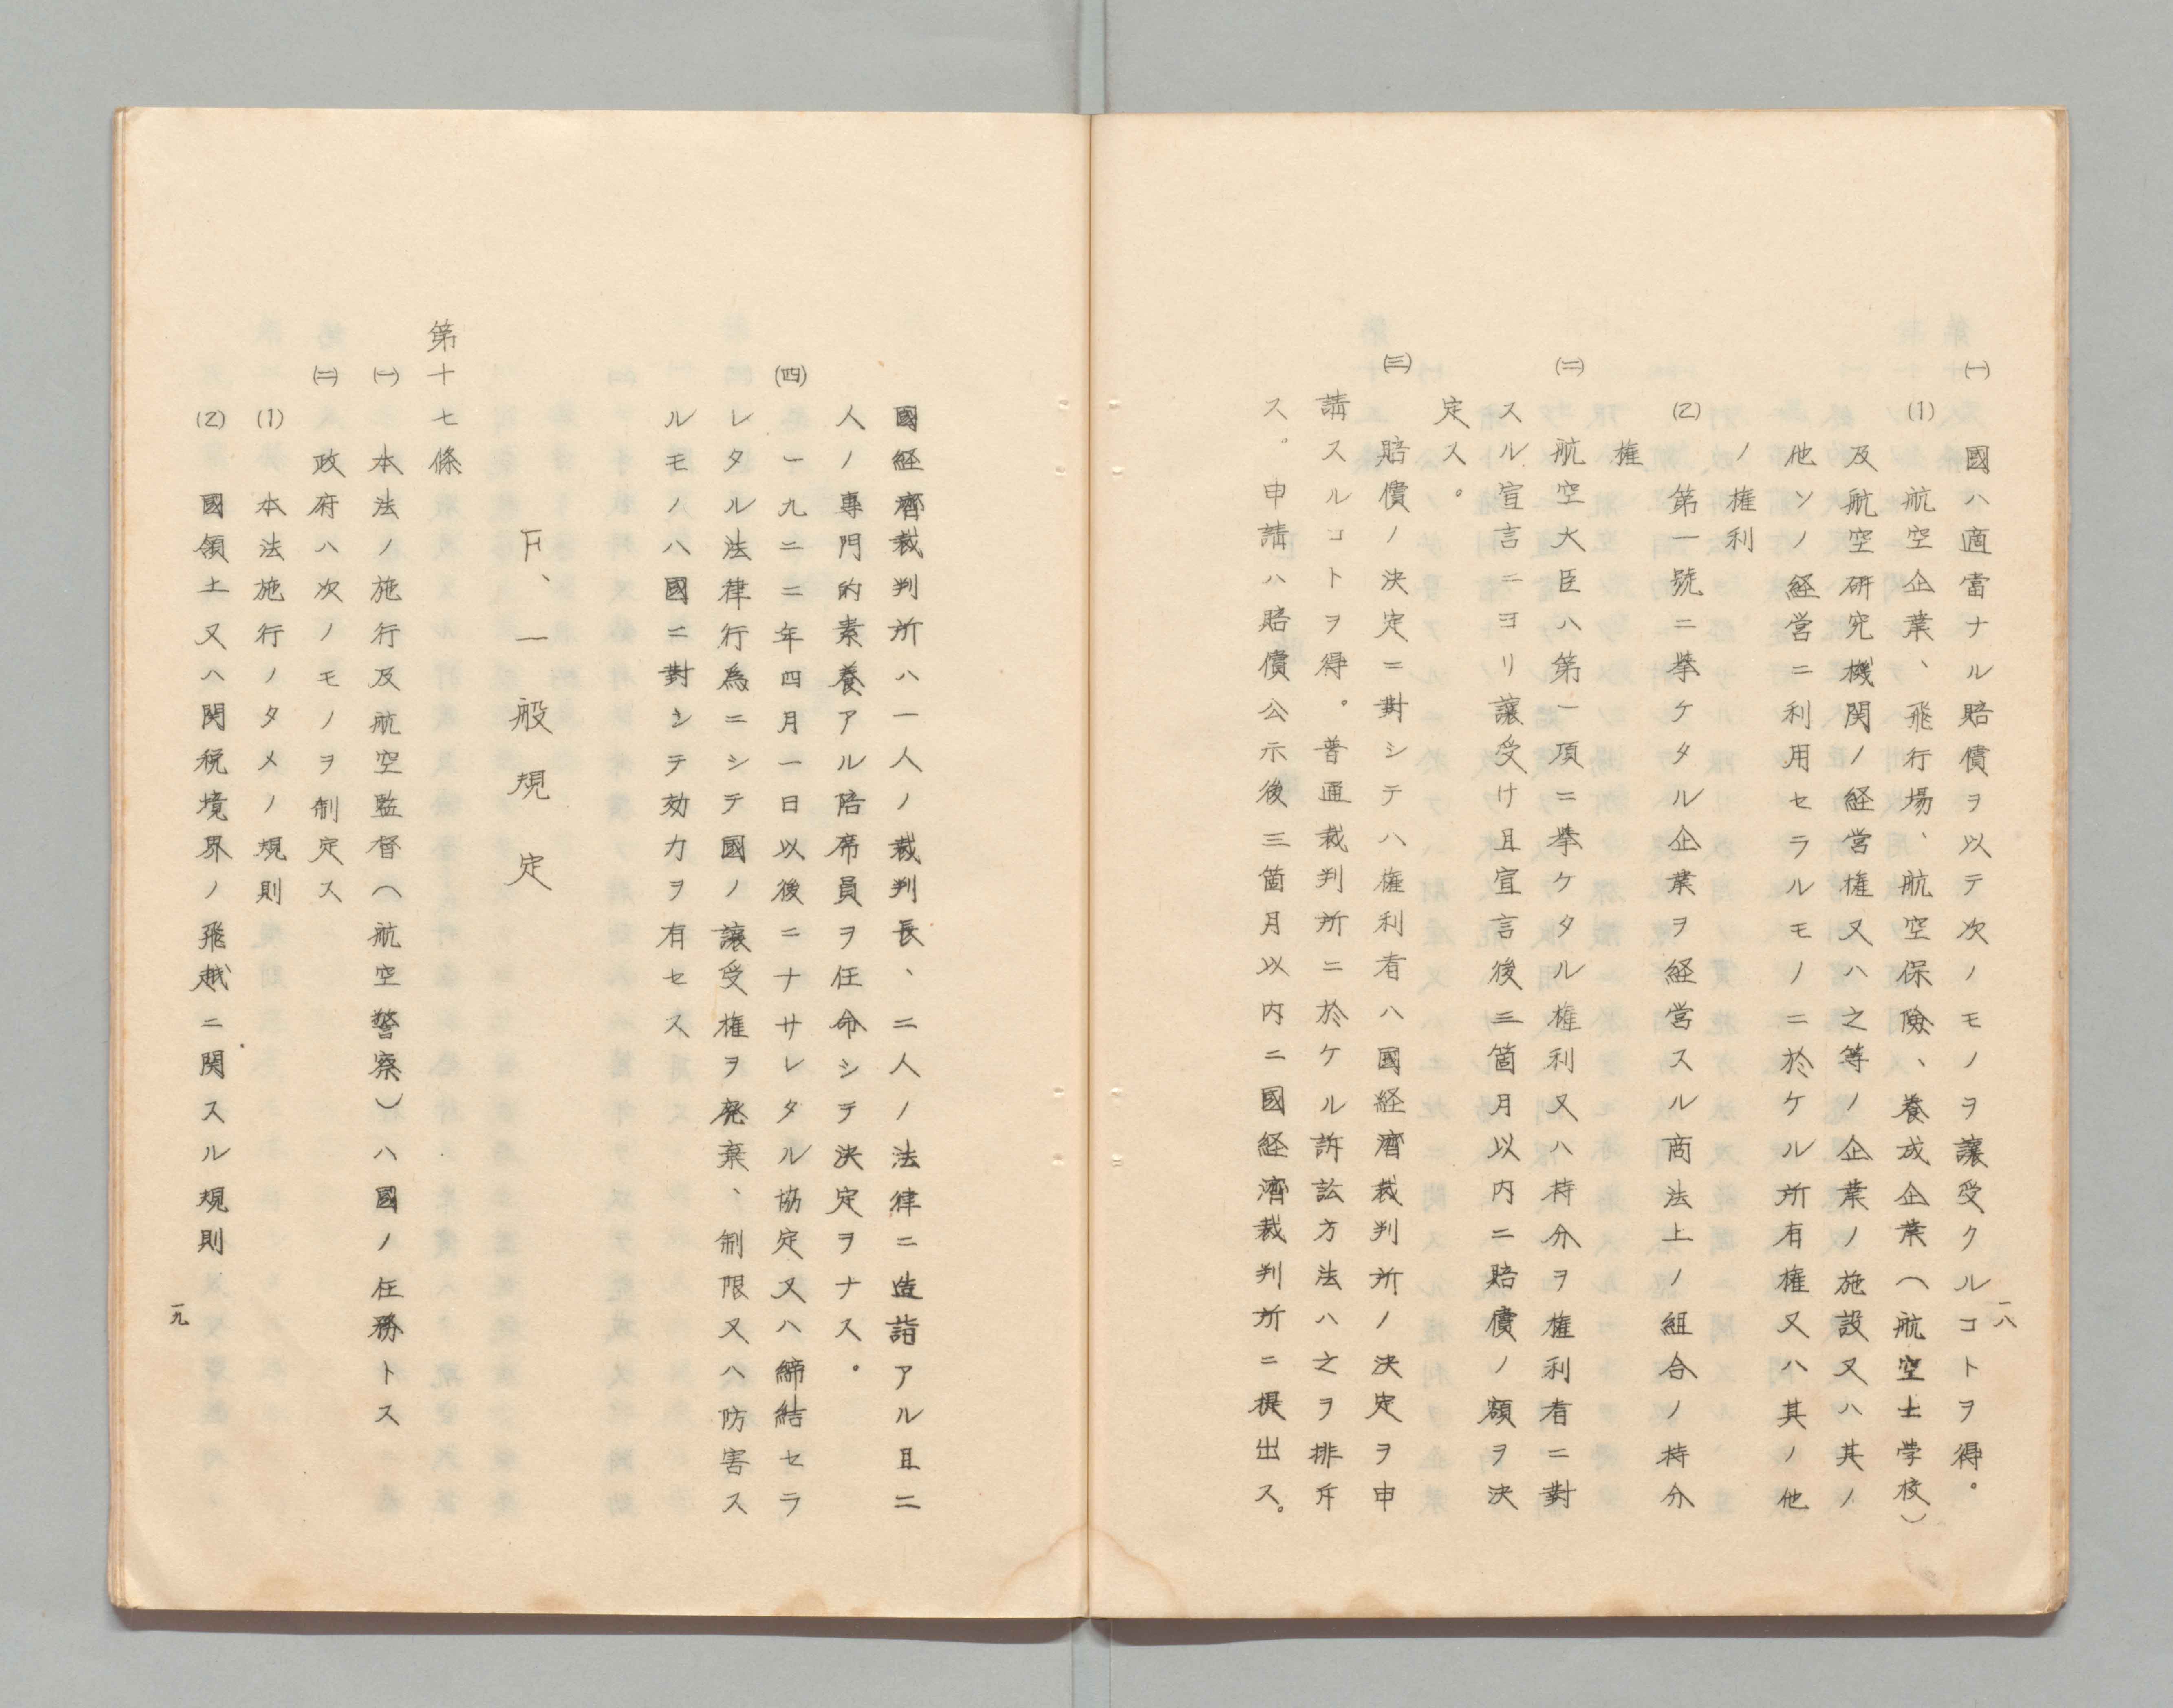 一八
㈠　國ハ適當ナル賠償ヲ以テ次ノモノヲ讓受クルコトヲ得。
(1)　航空企業、飛行場、航空保險、養成企業（航空士学校）
及航空研究機関ノ経営権又ハ之等ノ企業ノ施設又ハ其ノ
他ソノ経営ニ利用セラルモノニ於ケル所有権又ハ其ノ他
ノ権利
(2)　第一號ニ挙ケタル企業ヲ経営スル商法上ノ組合ノ持分
権
㈡　航空大臣ハ第一項ニ挙ケタル権利又ハ持分ヲ権利者ニ對
スル宣言ニヨリ讓受け且宣言後三箇月以内ニ賠償ノ額ヲ決
定ス。
㈢　賠償ノ決定ニ對シテハ権利者ハ國経濟裁判所ノ決定ヲ申
請スルコトヲ得。普通裁判所ニ於ケル訴訟方法ハ之ヲ排斥
ス。申請ハ賠償公示後三箇月以内ニ國経濟裁判所ニ提出ス。
國経濟裁判所ハ一人ノ裁判長、二人ノ法律ニ造詣アル且二
人ノ專門的素養アル陪席員ヲ任命シテ決定ヲナス。
㈣　一九二二年四月一日以後ニナサレタル協定又ハ締結セラ
レタル法律行為ニシテ國ノ讓受権ヲ発棄、制限又ハ防害ス
ルモノハ國ニ對シテ効力ヲ有セス
F、一般規定
第十七條
㈠　本法ノ施行及航空監督（航空警察）ハ國ノ任務トス
㈡　政府ハ次ノモノヲ制定ス
(1)　本法施行ノタメノ規則
(2)　國領土又ハ関税境界ノ飛越ニ関スル規則
一九